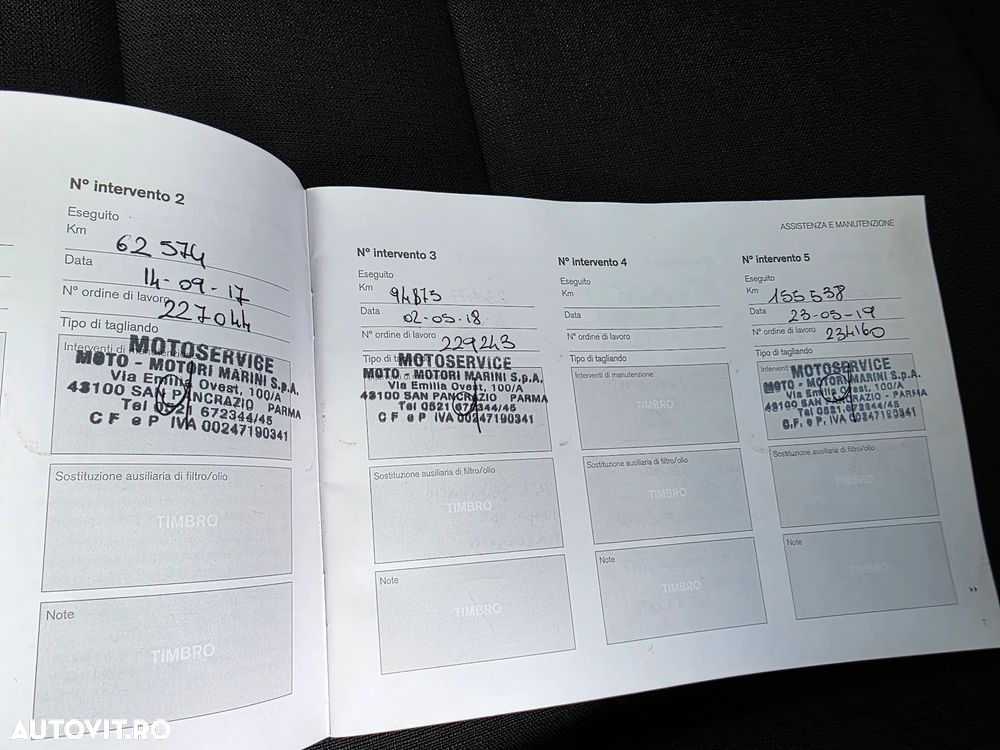 Nº intervento 2
Eseguito
Km 62 574
Data 14-09-17
Nº ordine di lavoro 227044
Tipo di tagliando
Interventi di
MOTOSERVICE
MOTO - MOTORI MARINI S.p.A.
Via Emilia Ovest, 100/A
43100 SAN PANCRAZIO PARMA
Tel 0521 672344/45
C F e P IVA 00247190341
Sostituzione ausiliaria di filtro/olio
TIMBRO
Note
TIMBRO
ASSISTENZA E MANUTENZIONE
Nº intervento 3
Eseguito
Km 94875
Data 02-05-18
Nº ordine di lavoro 229243
Tipo di tagliando
MOTOSERVICE
MOTO - MOTORI MARINI S.p.A.
Via Emilia Ovest, 100/A
43100 SAN PANCRAZIO PARMA
Tel 0521 672344/45
C F e P IVA 00247190341
Sostituzione ausiliaria di filtro/olio
TIMBRO
Note
TIMBRO
Nº intervento 4
Eseguito
Km
Data
Nº ordine di lavoro
Tipo di tagliando
Interventi di manutenzione
TIMBRO
Sostituzione ausiliaria di filtro/olio
TIMBRO
Note
TIMBRO
Nº intervento 5
Eseguito
Km 155 538
Data 23-05-19
Nº ordine di lavoro 234160
Tipo di tagliando
Interventi
MOTOSERVICE
MOTO - MOTORI MARINI S.p.A.
Via Emilia Ovest, 100/A
43100 SAN PANCRAZIO - PARMA
Tel 0521 672344/45
C.F. e P. IVA 00247190341
Sostituzione ausiliaria di filtro/olio
TIMBRO
Note
TIMBRO
AUTOVIT.RO